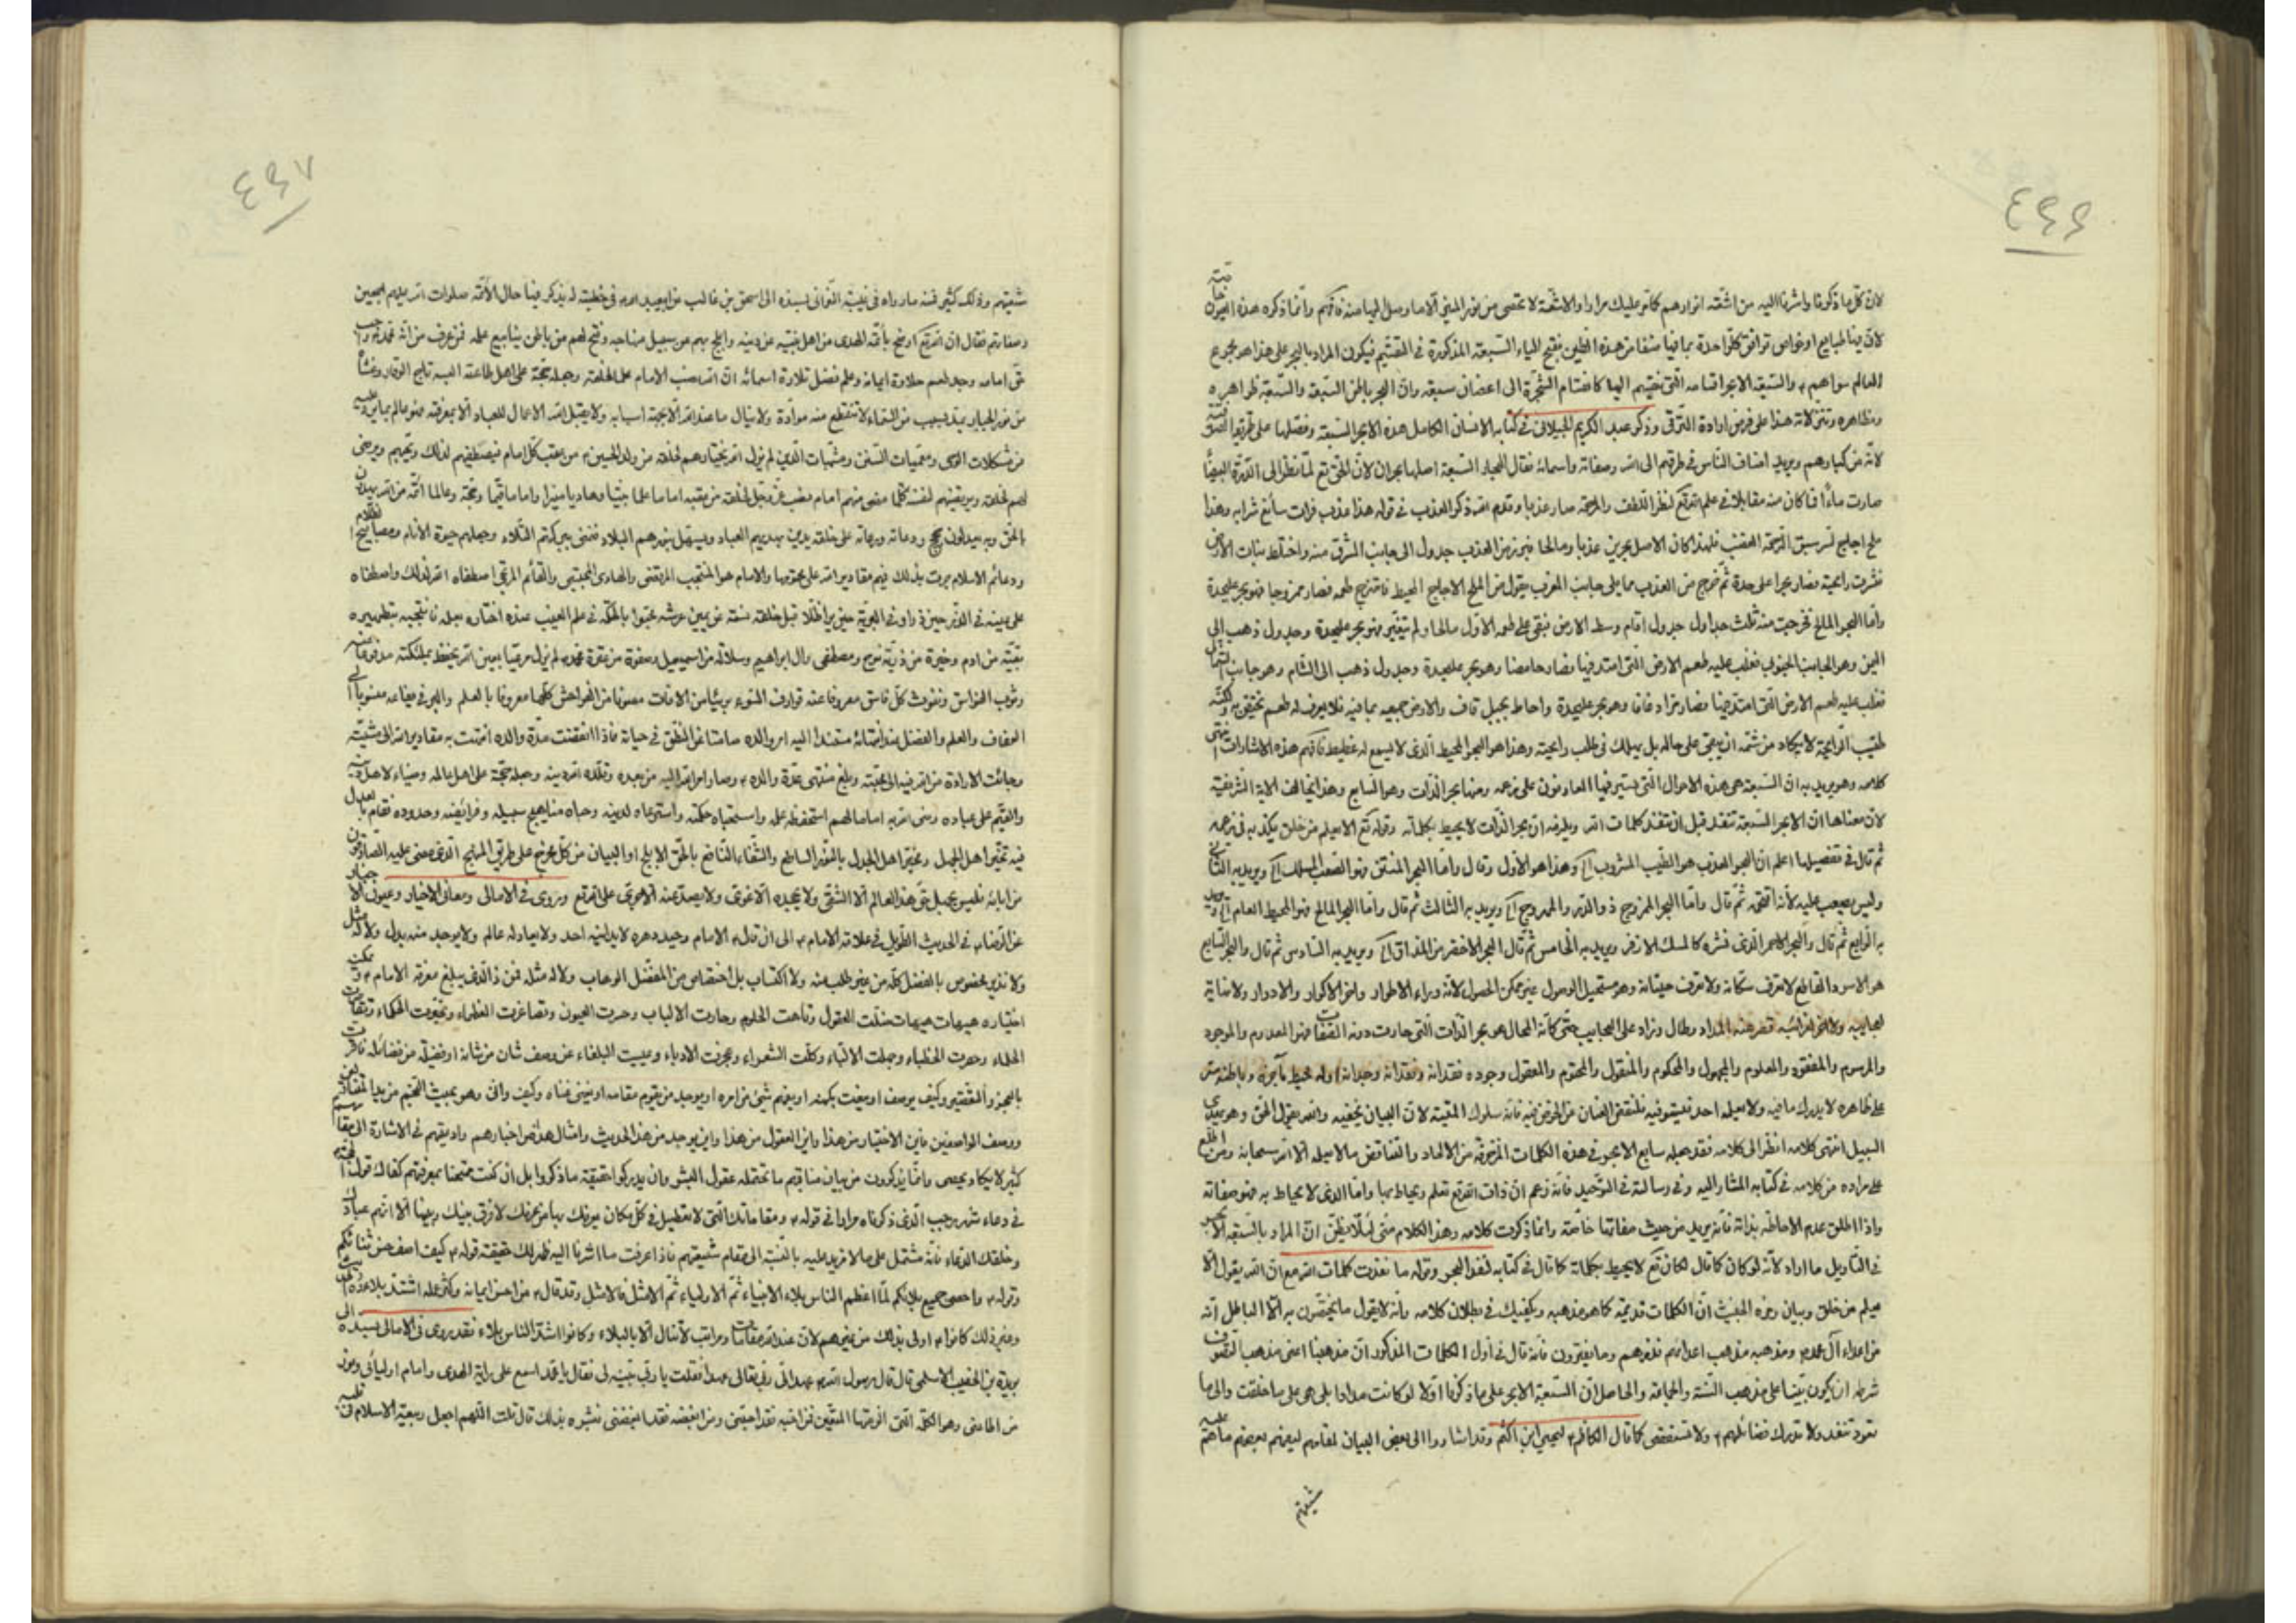 ٤٩٦
لان كل ما ذكرنا واشرنا اليه من اشعّة انوارهم كما مر عليك مرارا والاشعة لا تحصى من نور المنير الا ما وصل اليها منه فافهم وانما ذكره هذه
لان فيها طبايع او خواص توافق كل واحدة بما فيها شفا من هذه
العالم سواهم ع والسبعة الابحر اقسامه التى ينقسم اليها كانقسام الشجرة الى اغصان سبعة وان البحر باطن السبعة والسبعة ظواهره
ومظاهره وتنزلاته هذا على فرض ارادة الترقى وذكر عبد الكريم الجيلانى فى كتابه الانسان الكامل هذه الابحر السبعة وفصلها على طريقة
لانه من كبارهم ويريد اصناف الناس فى طرقهم الى الله وصفاته واسمائه فقال البحار السبعة اصلها بحران لان الحق تع لما نظر الى الدرة البيضا
صارت ماءً فما كان منه مقابلا فى علم الله تع لنظر اللطف والرحمة صار عذبا وقدم الله ذكر العذب فى قوله هذا عذب فرات سائغ شرابه وهذا
ملح اجاج لسر سبق الرحمة الغضب فلهذا كان الاصل بحرين عذبا ومالحا فبرز من العذب جدول الى جانب المشرق منه واختلط بنبات الارض
فنشرت رائحته فصار بحرا على حدة ثم خرج من العذب مما يلى جانب المغرب جدول من الملح الاجاج المحيط فامتزج طعمه فصار ممزوجا فهو بحر على حدة
واما البحر المالح فخرجت منه ثلث جداول جدول اقام وسط الارض فبقى على طعمه الاول مالحا ولم يتغير فهو بحر على حدة وجدول ذهب الى
اليمن وهو الجانب الجنوبى فغلب عليه طعم الارض التى امتد فيها فصار حامضا وهو بحر على حدة وجدول ذهب الى الشام وهو جانب الشمال
فغلب عليه طعم الارض التى امتد فيها فصار مرا زعاقا وهو بحر على حدة واحاط بجبل قاف والارض جميعه بما فيه فلا يعرف له طعم يختص به ولكنه
طيب الرائحة لا يكاد من شمه ان يبقى على حاله بل يهلك فى طيب رائحته وهذا هو البحر المحيط الذى لا يسمع له غطيط فافهم هذه الاشارات انتهى
كلامه وهو يريد به ان السبعة هى هذه الاحوال التى يسير فيها العارفون على زعمه ومنها بحر الذات وهو السابع وهذا يخالف الاية الشريفة
لان معناها ان الابحر السبعة تنفد قبل ان تنفد كلمات الله ويلزمه ان بحر الذات لا يحيط بكلماته وقوله تع الا يعلم من خلق يكذبه فى زعمه
ثم قال فى تفصيلها اعلم ان البحر العذب هو الطيب المشروب الخ وهذا هو الاول وقال واما البحر المنتن فهو الصعب المسلك الخ ويريد به الثانى
وليس بصعب عليه لانه اقتحمه ثم قال واما البحر الممزوج ذو الدر والمروج الخ ويريد به الثالث ثم قال واما البحر المالح فهو المحيط العام الخ ويريد
به الرابع ثم قال والبحر الاحمر الذى نشره كالمسك الاذفر ويريد به الخامس ثم قال البحر الاخضر من المذاق الخ ويريد به السادس ثم قال والبحر السابع
هو الاسود القاطع لا تعرف سكانه ولا تعرف حيتانه وهو مستحيل الوصول غير ممكن الحصول لانه وراء الاطوار واخر الاكوار والادوار ولا نهاية
لعجايبه ولا اخر لغرائبه قصر عنه المداد وطال وزاد على العجايب حتى كانه المحال هو بحر الذات التى حارت دونه الصفات فهو المعدوم والموجود
والمرسوم والمفقود والمعلوم والمجهول والمحكوم والمنقول والمحتوم والمعقول وجوده فقدانه وفقدانه وجدانه اوله محيط بآخره وباطنه مستو
على ظاهره لا يدرك ما فيه ولا يعلمه احد فيستوفيه فلنقبض العنان عن الخوض فيه فانه سلوك التيه لان البيان يخفيه والله يقول الحق وهو يهدى
السبيل انتهى كلامه انظر الى كلامه فقد جعله سابع الابحر فى هذه الكلمات المزخرفة من الالحاد والتناقض ما لا يعلمه الا الله سبحانه ومن اطلع
على مراده من كلامه فى كتابه المشار اليه وفى رسالته فى التوحيد فانه زعم ان ذات الله تع تعلم ويحاط بها واما الذى لا يحاط به فهو صفاته
واذا اطلق عدم الاحاطة بذاته فانه يريد من حيث صفاتها خاصة وانما ذكرت كلامه وهذا الكلام منى لئلا يظن ان المراد بالسبعة الابحر
فى التأويل ما اراد لانه لو كان كما قال لكان تع لا يحيط بكلماته كما قال فى كتابه لنفد البحر وقوله ما نفدت كلمات الله مع ان الله يقول الا
يعلم من خلق وبيان رمزه الخبيث ان الكلمات قديمة كما هو مذهبه ويكفيك فى بطلان كلامه بأنه لا يقول ما يختصون به الا الباطل انه
من اعداء آل محمد ص ومذهبه مذهب اعدائهم فذرهم وما يفترون فانه قال فى اول الكلمات المذكور ان مذهبنا اعنى مذهب التصوف
شرطه ان يكون مبنيا على مذهب السنة والجماعة والحاصل ان السبعة الابحر على ما ذكرنا اولا لو كانت مدادا بل هى على ما خلقت والى ما
تعود تنفد ولا تدرك فضائلهم ع ولا تستقصى كما قال الكاظم ع ليحيى بن اكثم وقد اشاروا الى بعض البيان لمقامهم ليعرفهم بعضهم
شيعتهم
٤٩٧
شيعتهم وذلك كثير فمنه ما رواه فى غيبة النعمانى بسنده الى اسحق بن غالب عن ابيعبد الله ع فى خطبة له يذكر فيها حال الائمة صلوات الله عليهم اجمعين
وصفاتهم فقال ان الله تع اوضح بأئمة الهدى من اهل بيت نبيه عن دينه وابلج بهم عن سبيل منهاجه وفتح لهم عن باطن ينابيع علمه فمن عرف من امة محمد ص واجب
حق امامه وجد طعم حلاوة ايمانه وعلم فضل طلاوة اسلامه ان الله نصب الامام علما لخلقه وجعله حجة على اهل طاعته البسه تاج الوقار وغشاه
من نور الجبار يمد بسبب من السماء لا تنقطع منه مواده ولا ينال ما عند الله الا بجهة اسبابه ولا يقبل الله الاعمال للعباد الا بمعرفته فهو عالم بما يرد عليه
من مشكلات الوحى ومعميات السنن ومشتبهات الدين لم يزل الله يختارهم لخلقه من ولد الحسين ع من عقب كل امام فيصطفيهم لذلك ويجتبيهم ويرضى
بهم لخلقه ويرتضيهم لنفسه كلما مضى منهم امام نصب عز وجل لخلقه من عقبه اماما علما بينا وهاديا منيرا واماما قيما وحجة وعالما ائمة من الله يهدون
بالحق وبه يعدلون حجج ودعاته ورعاته على خلقه يدين بهديهم العباد ويستهل بنورهم البلاد وتنمى ببركتهم التلاد وجعلهم حيوة الانام ومصابيح الظلام
ودعائم الاسلام جرت بذلك فيهم مقادير الله على محتومها والامام هو المنتجب المرتضى والهادى المجتبى والقائم المرتجى اصطفاه الله لذلك واصطنعه
على عينه فى الذر حين ذراه وفى البرية حين برأه ظلا قبل خلقه نسمة عن يمين عرشه محبوا بالحكمة فى علم الغيب عنده اختاره بعلمه وانتجبه بتطهيره
بقية من ادم وخيرة من ذرية نوح ومصطفى آل ابراهيم وسلالة من اسمعيل وصفوة من عترة محمد ص لم يزل مرعيا بعين الله يحفظه بملئكته مدفوعا عنه
وقوب الغواسق ونفوث كل فاسق مصروفا عنه قوارف السوء مبرئا من الافات معصوما من الفواحش كلها معروفا بالعلم والبر فى يفاعه منسوبا الى
العفاف والعلم والفضل عند انتهائه مسندا اليه امر والده صامتا عن المنطق فى حياته فاذا انقضت مدة والده انتهت به مقادير الله الى مشيته
وجائت الارادة من الله فيه الى محبته وبلغ منتهى مدة والده ع وصار امر الله اليه من بعده وقلده الله دينه وجعله حجة على اهل عالمه وضياء لاهل دينه
والقيم على عباده رضى الله به اماما لهم استحفظه علمه واستحباه حكمته واسترعاه لدينه وحباه مناهج سبيله وفرائضه وحدوده فقام بالعدل
عند تحير اهل الجهل وتحيير اهل الجدل بالنور الساطع والشفاء النافع بالحق الابلج او البيان من كل مخرج على طريق المنهج الذى مضى عليه الصادقون
من ابائه فليس يجهل حق هذا العالم الا الشقى ولا يجحده الا غوى ولا يصد عنه الا جرى على الله تع وروى فى الامالى ومعانى الاخبار وعيون الاخبار
عن الرضا ع فى الحديث الطويل فى علامة الامام ع الى ان قال ع الامام وحيد دهره لا يدانيه احد ولا يعادله عالم ولا يوجد منه بدل ولا له مثل
ولا نظير مخصوص بالفضل كله من غير طلب منه ولا اكتساب بل اختصاص من المفضل الوهاب ولا له مثله فمن ذا الذى يبلغ معرفة الامام ع ويمكنه
اختياره هيهات هيهات ضلت العقول وتاهت الحلوم وحارت الالباب وحسرت العيون وتصاغرت العظماء وتحيرت الحكماء وتقاصرت
الحلماء وحصرت الخطباء وجهلت الالباء وكلت الشعراء وعجزت الادباء وعييت البلغاء عن وصف شان من شانه او فضيلة من فضائله فاقرت
بالعجز والتقصير وكيف يوصف او ينعت بكنهه او يفهم شىء من امره او يوجد من يقوم مقامه او يغنى غناه وكيف وانى وهو بحيث النجم من يد المتناولين
ووصف الواصفين فاين الاختيار من هذا واين العقول من هذا واين يوجد مثل هذا الحديث وامثال هذا من اخبارهم واديتهم فى الاشارة الى مقامهم
كثير لا يكاد يحصى وانما يذكرون من بيان مناقبهم ما تحتمله عقول البشر وان يدركوا حقيقة ما ذكروا بل ان كنت ممتحنا بمعرفتهم كفاك قول الحجة
فى دعاء شهر رجب الذى ذكرناه مرارا فى قوله ع ومقاماتك التى لا تعطيل فى كل مكان يعرفك بها من عرفك لا فرق بينك وبينها الا انهم عبادك
وخلقك الدعاء فانه مشتمل على ما لا مزيد عليه بالنسبة الى مقام شيعتهم فاذا عرفت ما اشرنا اليه ظهر لك حقيقة قوله ع كيف اصف حسن ثنائكم
وقوله ع واحصى جميع بلائكم لما اعظم الناس بلاء الانبياء ثم الاولياء ثم الامثل فالامثل وقد قال ع من احسن ايمانه وكثر عمله اشتد بلاءه
وغير ذلك كانوا ع اولى بذلك من غيرهم لان عند الله مقامات ومراتب لا تنال الا بالبلاء وكانوا اشد الناس بلاء فقد يروى فى الامالى بسنده الى
بريدة بن الخصيب الاسلمى قال قال رسول الله ص عهد الى ربى تعالى عهدا فقلت يا رب بينه لى فقال يا محمد اسمع على راية الهدى وامام اوليائى ونور
من اطاعنى وهو الكلمة التى الزمتها المتقين فمن احبه فقد احبنى ومن ابغضه فقد ابغضنى فبشره بذلك قال قلت اللهم اجعل ربيعة الاسلام فى قلبه